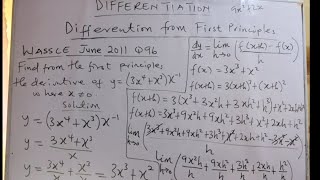 DIFFERENTIATION
9x²+2x
Differention from First Principles
WASSCE June 2011 Q9b
Find from the first principles
the derivative of y = (3x⁴+x³)x⁻¹
where x≠0
Solution
y = (3x⁴+x³)x⁻¹
y = 3x⁴+x³
x
y = 3x⁴ + x³ = 3x³+x²
x x
dy/dx = lim h→0 (f(x+h) - f(x))
h
f(x) = 3x³+x²
f(x+h) = 3(x+h)³+(x+h)²
f(x+h) = 3(x³+3x²h+3xh²+h³)+x²+2xh+h²
f(x+h) = 3x³+9x²h+9xh²+3h³+x²+2xh+h²
lim h→0 (3x³+9x²h+9xh²+3h³+x²+2xh+h²-3x³-x²)
h
lim h→0 (9x²h + 9xh² + 3h³ + 2xh + h²)
h h h h h